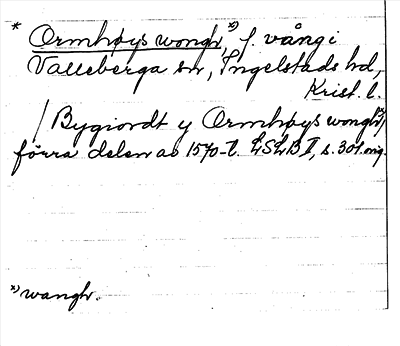 * Ormhøys wongh, *) f. vång i
Valleberga sn, Ingelstads hd,
Krist. l.
/ Bygiordt y Ormhøys wongh *)/
förra delen av 1570-t. LSLB II, s. 301 orig.
*) wangh.